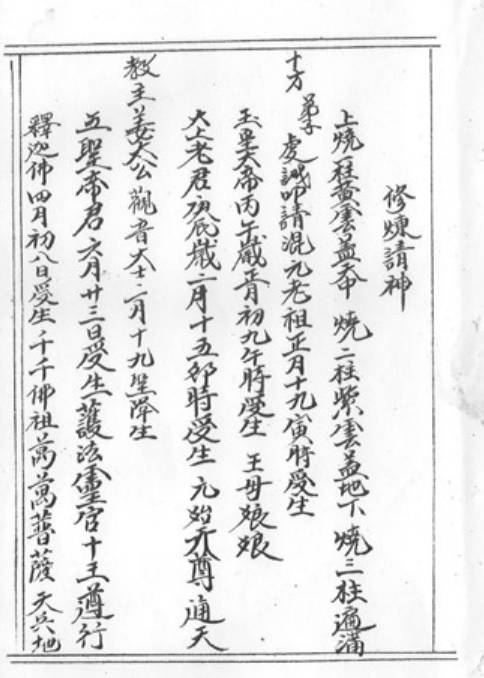 修煉請神
上燒一柱黃雲蓋天中 燒二柱紫雲蓋地下 燒三柱遍滿
十方 弟子虔誠叩請混元老祖正月十九寅時受生
玉皇大帝丙午歲正月初九午時受生 王母娘娘
太上老君 辰歲二月十五卯時受生 元始天尊 通天
教主 姜太公 觀音大士二月十九聖降生
五聖帝君 六月廿三日受生 護法靈官 十王遵行
釋迦佛四月初八日受生 千千佛祖萬萬普薩 天兵地